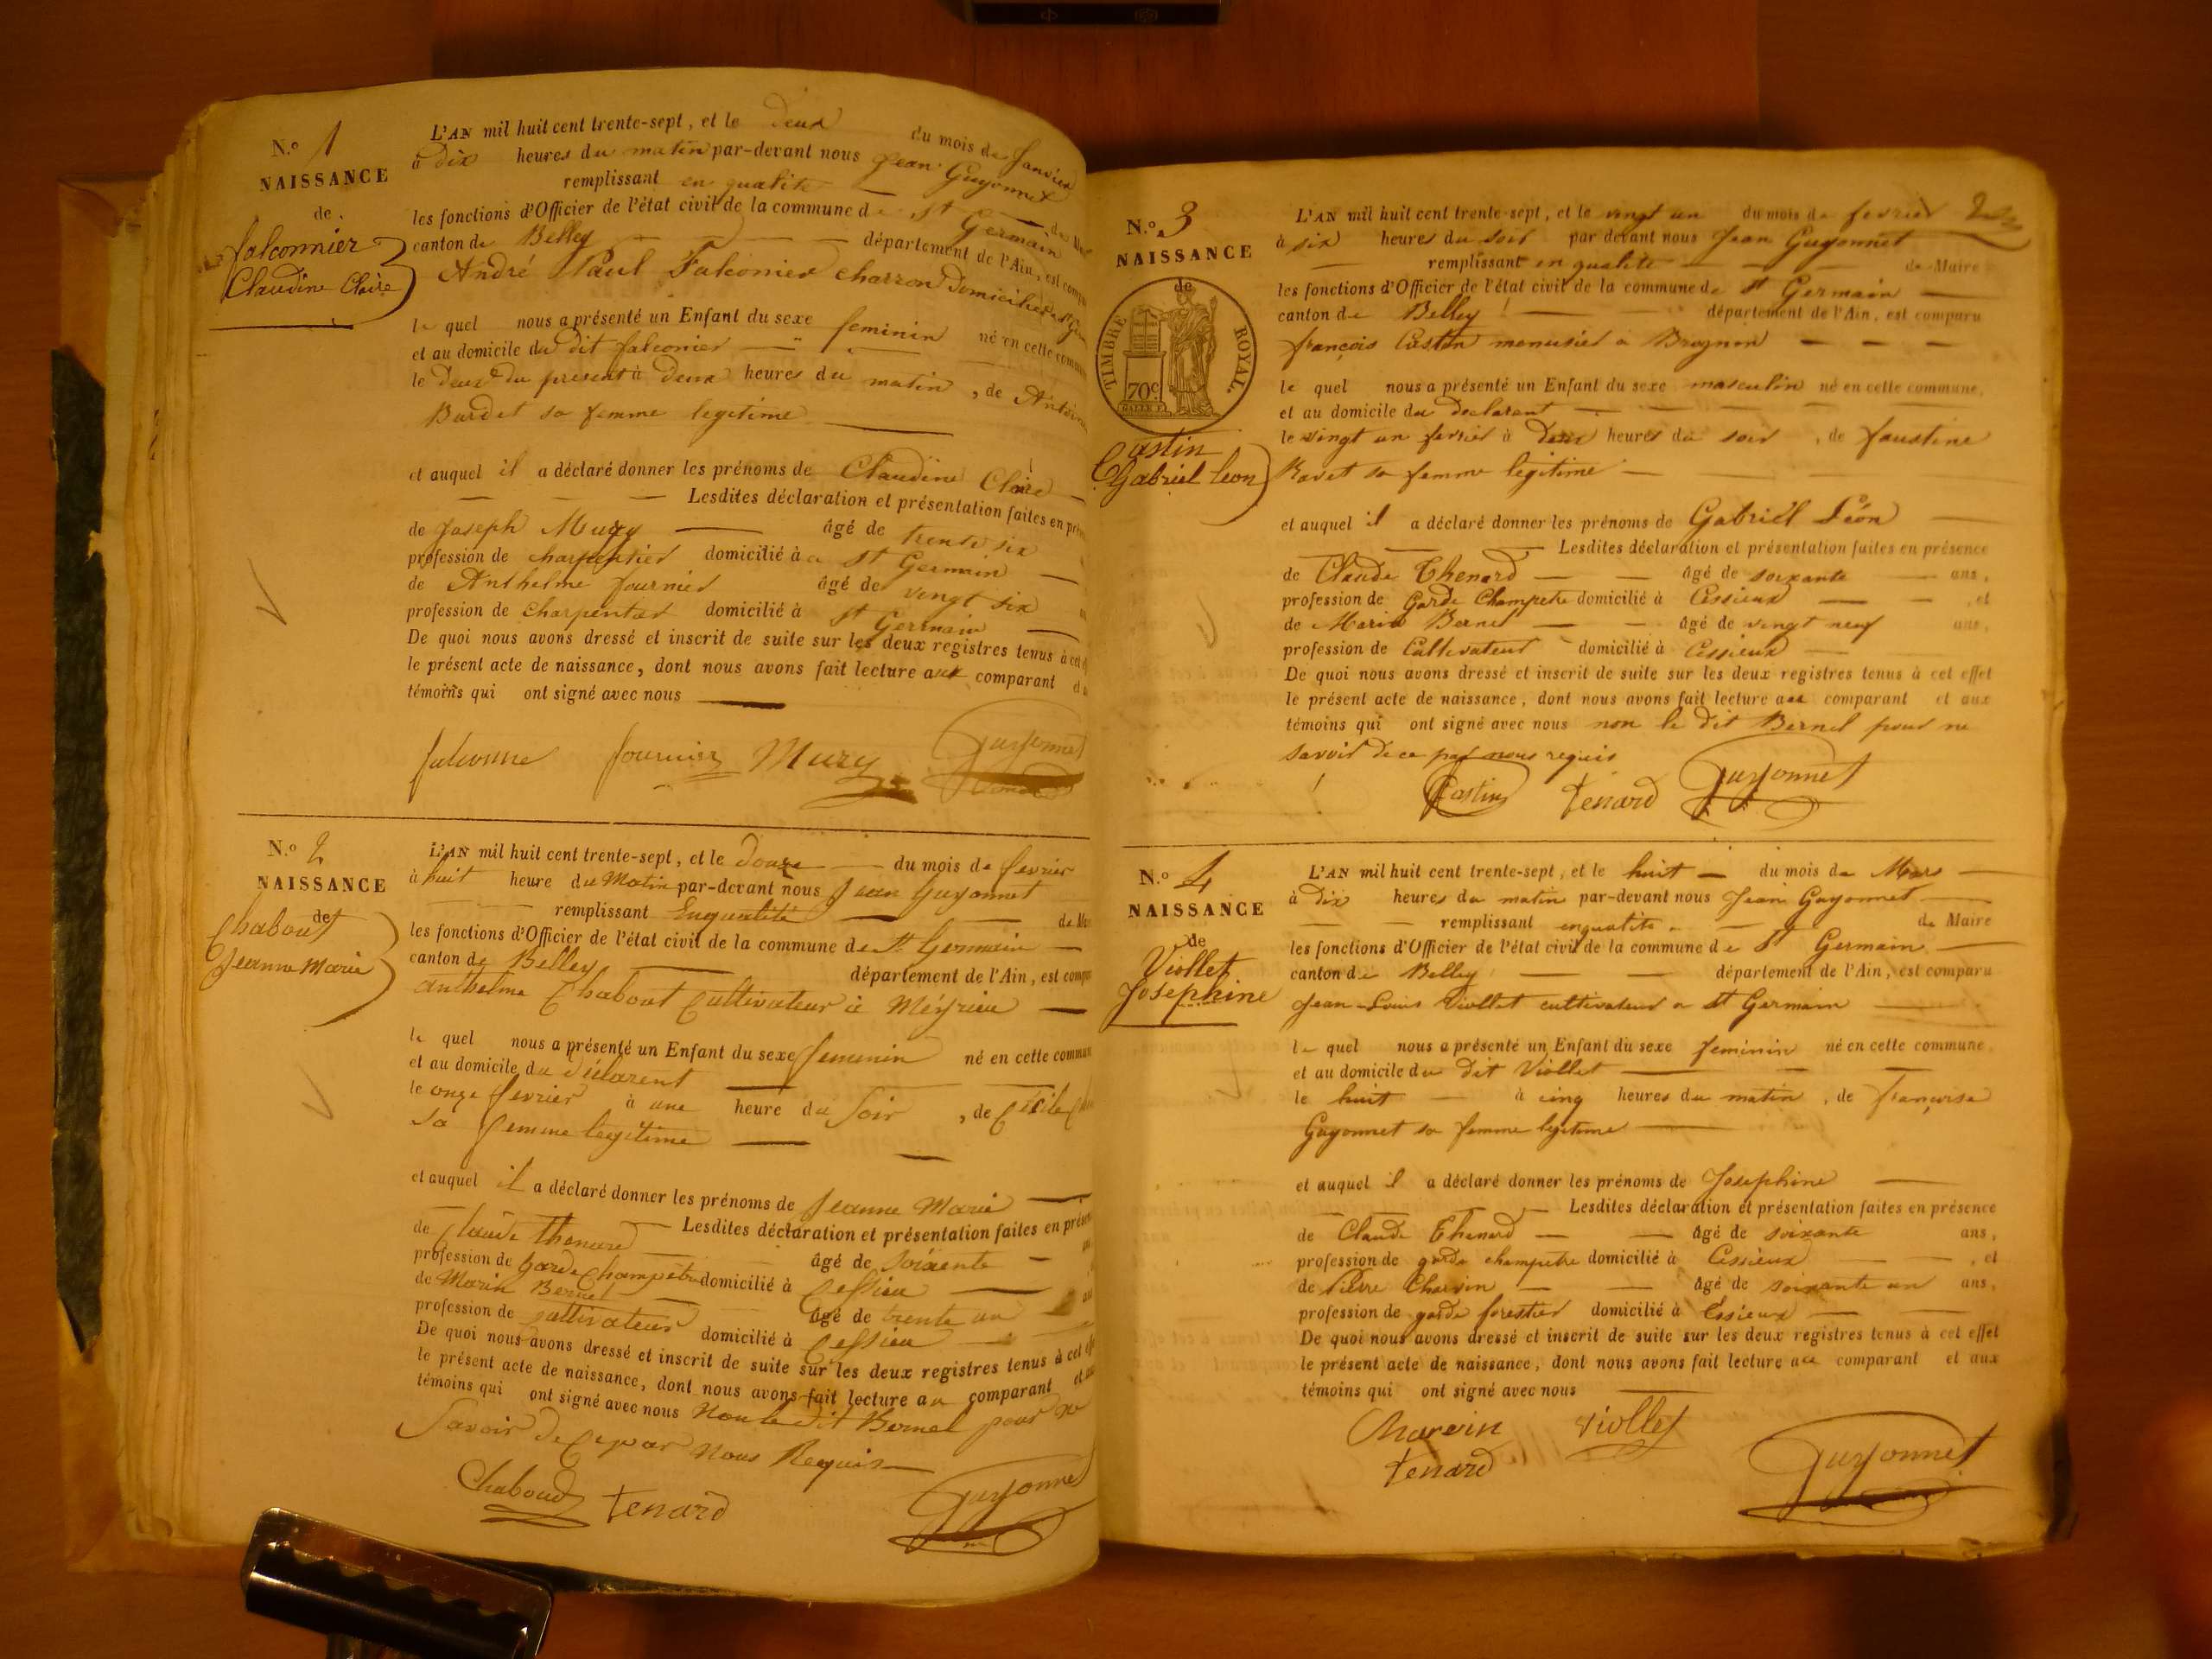 N.º 1
NAISSANCE
de
falconnier
Claudine Claire
L'AN mil huit cent trente-sept, et le Deux du mois de Janvier
à Dix heures du matin par-devant nous Jean Guyonnet
remplissant en qualite
les fonctions d'Officier de l'état civil de la commune de St Germain
canton de Belley département de l'Ain, est
André Paul Falconier charron Domicilié
le quel nous a présenté un Enfant du sexe feminin né en cette
et au domicile du dit falconier
le Deux du present à Deux heures du matin, de
Bardet sa femme legitime
et auquel il a déclaré donner les prénoms de Claudine Claire
Lesdites déclaration et présentation faites en
de Joseph Mury âgé de trente six
profession de charpentier domicilié à a St Germain
de Anthelme fournier âgé de vingt six
profession de Charpentier domicilié à St Germain
De quoi nous avons dressé et inscrit de suite sur les deux registres tenus à cet
le présent acte de naissance, dont nous avons fait lecture aux comparant
témoins qui ont signé avec nous
falconnie fournier Mury Guyonnet
N.º 2
NAISSANCE
de
Chabout
Jeanne Marie
L'AN mil huit cent trente-sept, et le Douze du mois de fevrier
à huit heure du Matin par-devant nous Jean Guyonnet
remplissant Enqualité de
les fonctions d'Officier de l'état civil de la commune de St Germain
canton de Belley département de l'Ain, est
anthelme Chabout Cultivateur à Meÿrieu
le quel nous a présenté un Enfant du sexe femenin né en cette
et au domicile du déclarent
le onze fevrier à une heure du Soir, de Cécile
sa femme legitime
et auquel il a déclaré donner les prénoms de Jeanne Marie
Lesdites déclaration et présentation faites en
de Claude thenard âgé de Soixente
profession de garde Champêtre domicilié à Cessieu
de Marin Bernel âgé de trente un
profession de cultivateur domicilié à Cessieu
De quoi nous avons dressé et inscrit de suite sur les deux registres tenus à cet
le présent acte de naissance, dont nous avons fait lecture au comparant
témoins qui ont signé avec nous Non le dit Bernel pour ne
Savoir de Ce par nous Requis
Chaboud tenard Guyonnet
N.º 3
NAISSANCE
de
TIMBRE ROYAL.
70c
Castin
Gabriel leon
L'AN mil huit cent trente-sept, et le vingt un du mois de fevrier
à six heures du soir par devant nous Jean Guyonnet
remplissant en qualite de Maire
les fonctions d'Officier de l'état civil de la commune de St Germain
canton de Belley département de l'Ain, est comparu
françois Castin menusier a Brognin
le quel nous a présenté un Enfant du sexe masculin né en cette commune,
et au domicile du declarant
le vingt un fevrier à Deux heures du soir, de faustine
Ravet sa femme legitime
et auquel il a déclaré donner les prénoms de Gabriël Léon
Lesdites déclaration et présentation faites en présence
de Claude Thenard âgé de soixante ans,
profession de Garde Champetre domicilié à Cessieux, et
de Marin Bernel âgé de vingt neuf ans,
profession de Cultivateur domicilié à Cessieux
De quoi nous avons dressé et inscrit de suite sur les deux registres tenus à cet effet
le présent acte de naissance, dont nous avons fait lecture au comparant et aux
témoins qui ont signé avec nous non le dit Bernel pour ne
savoir de ce par nous requis
Castin tenard Guyonnet
N.º 4
NAISSANCE
de
Viollet
Josephine
L'AN mil huit cent trente-sept, et le huit du mois de Mars
à Dix heures du matin par-devant nous Jean Guyonnet
remplissant enqualite de Maire
les fonctions d'Officier de l'état civil de la commune de St Germain
canton de Belley département de l'Ain, est comparu
Jean-Louis Viollet cultivateur a St Germain
le quel nous a présenté un Enfant du sexe feminin né en cette commune,
et au domicile du dit Viollet
le huit à cinq heures du matin, de françoise
Guyonnet sa femme legitime
et auquel il a déclaré donner les prénoms de Josephine
Lesdites déclaration et présentation faites en présence
de Claude Thenard âgé de soixante ans,
profession de garde champetre domicilié à Cessieux, et
de Pierre Charvin âgé de soixante un ans,
profession de garde forestier domicilié à Cessieux
De quoi nous avons dressé et inscrit de suite sur les deux registres tenus à cet effet
le présent acte de naissance, dont nous avons fait lecture au comparant et aux
témoins qui ont signé avec nous
Charvin viollet
tenard Guyonnet